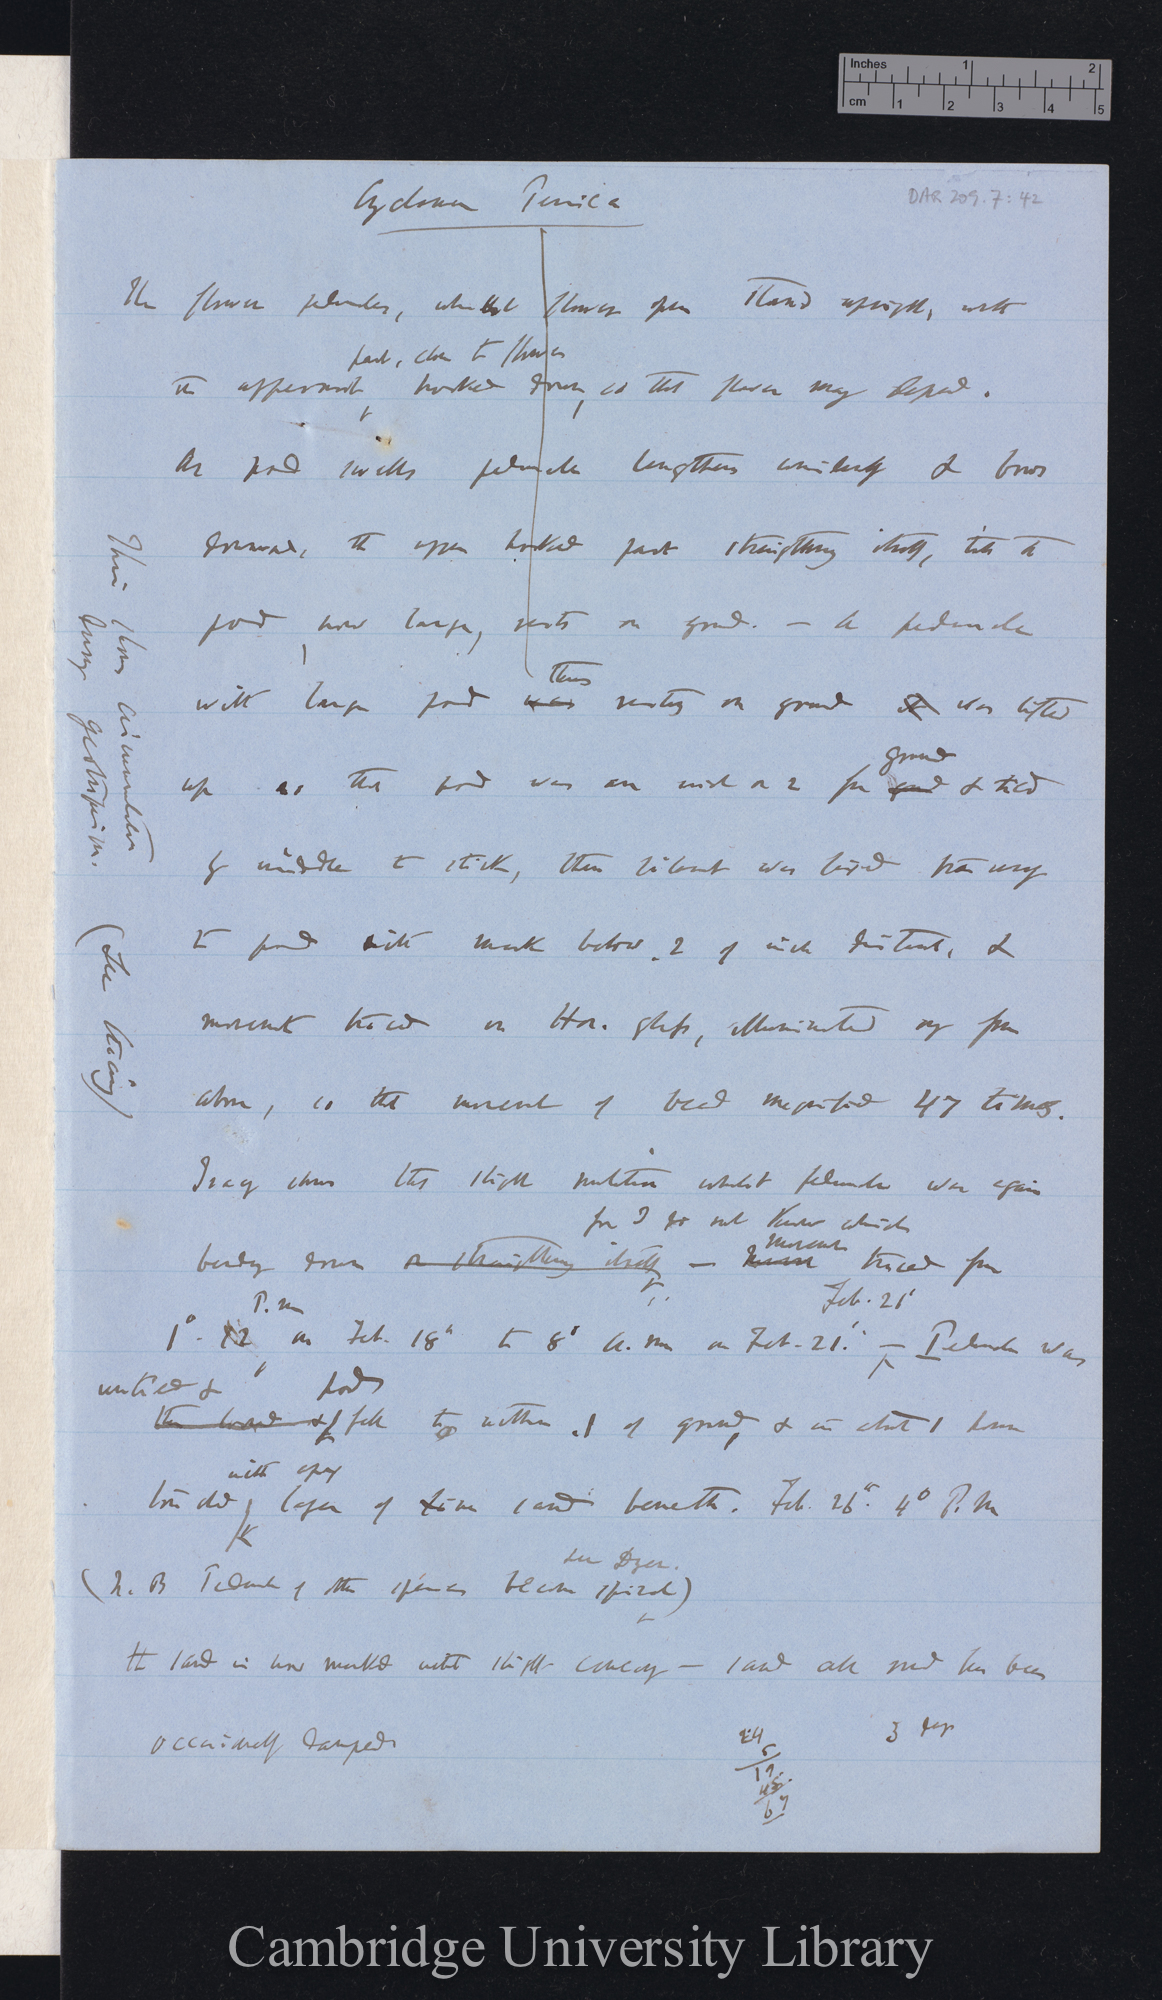 Inches 1 2
cm 1 2 3 4 5
DAR 209.7: 42
Cyclamen Persica
The flower peduncles, whilst flowers open stand upright, with
part, close to flower
the uppermost hooked down, so that flower may depend.
As pod swells peduncle lengthens considerably & bows
downward, the upper hooked part straightening itself, till the
pod, now large, rests on ground. — A peduncle
thus
with large pod was resting on ground it was lifted
ground
up so that pod was an inch or 2 from & tied
by middle to stick, then filament was fixed
to pod with mark below .2 of inch distant, &
movement traced on Hor. glass, illuminated only from
above, so that movement of bead magnified 47 times.
Tracing shows this slight nutation whilst peduncle was again
for I do not know which
movement
bending down or straightening itself — traced from
P.m Feb. 21
1° on Feb. 18th to 8° a.m on Feb. 21. — Peduncle was
untied & pod
then loosed & fell to within .1 of ground, & in about 1 hour
with apex
touched layer of fine sand beneath. Feb. 26th 4° P.m
see Dyer.
(N.B Peduncle of other species become spiral)
The sand is now marked with slight concavity — sand all round has been
occasionally damped
24
5
19
48
67
3 days
This shows circumnutation
during geotropism.
(See tracing)
Cambridge University Library